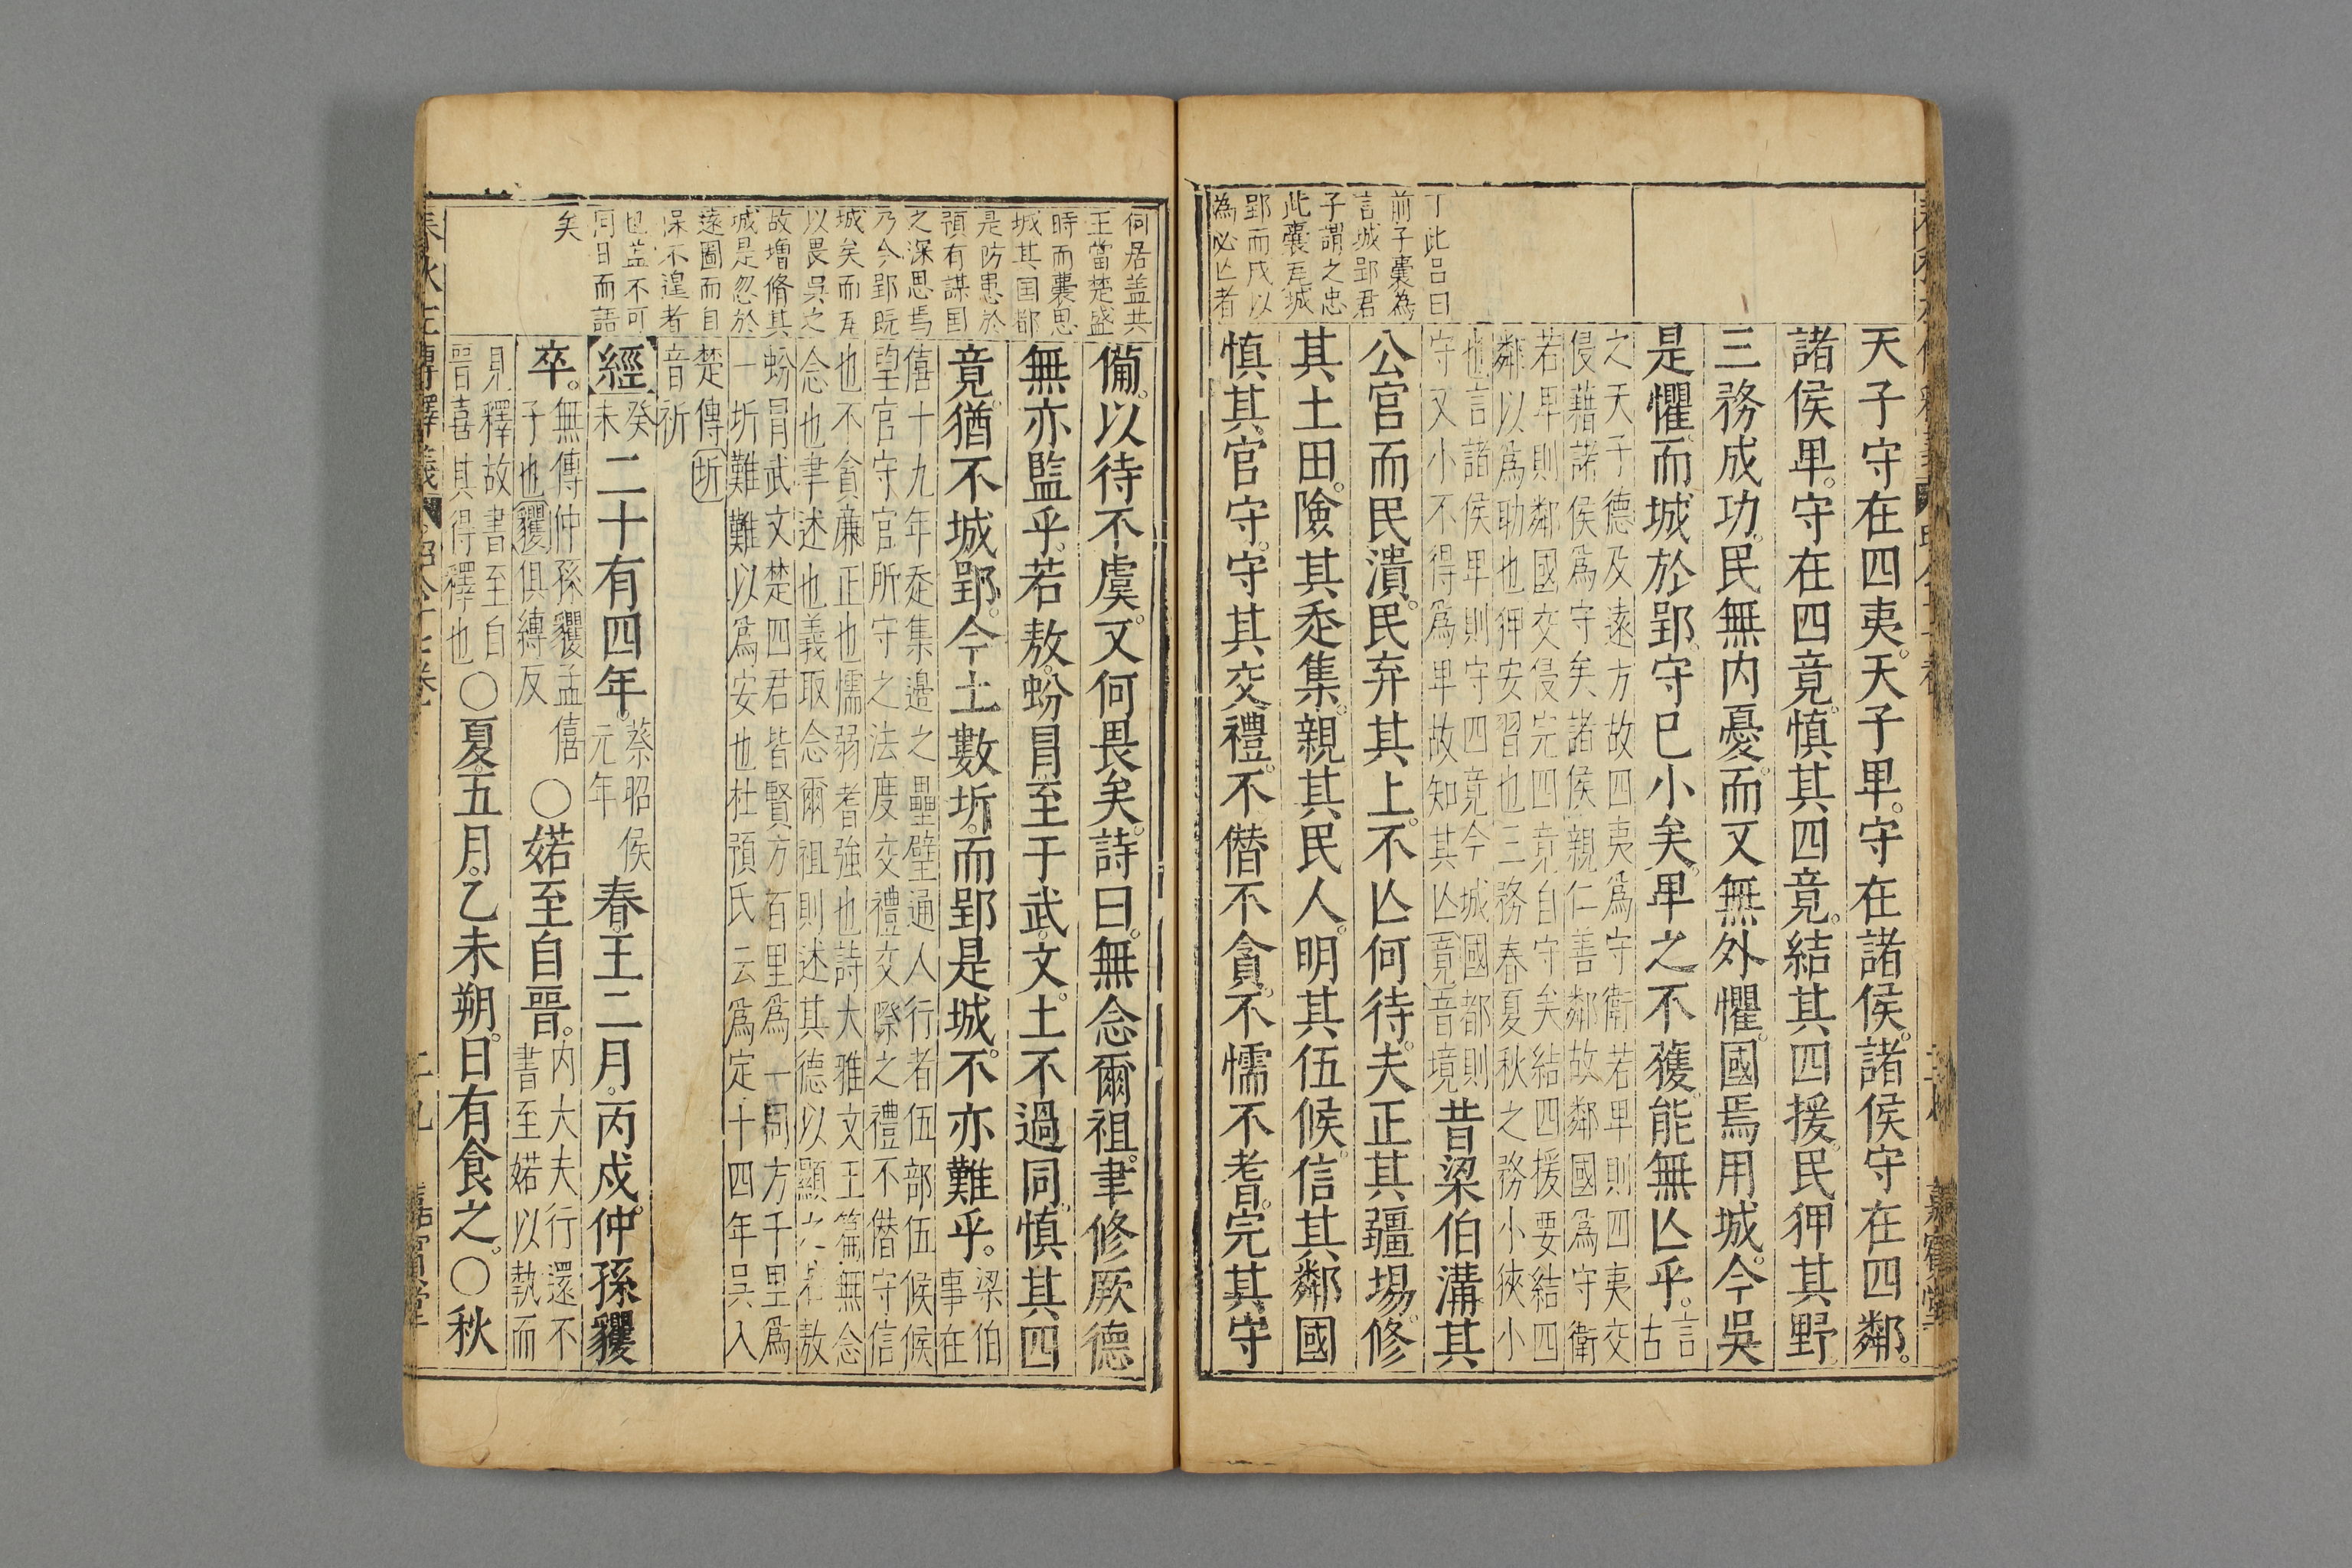 天子守在四夷。天子卑。守在諸侯。諸侯守在四鄰。
諸侯卑。守在四竟。慎其四竟。結其四援。民狎其野。
三務成功。民無内憂。而又無外懼。國焉用城。今吳
是懼。而城於郢。守巳小矣。卑之不獲。能無亾乎。言古
之天子德及遠方故四夷爲守衛若卑則四夷交
侵藉諸侯爲守矣諸侯親仁善鄰故鄰國爲守衛
若卑則鄰國交侵完四竟自守矣結四援要結四
鄰以爲助也狎安習也三務春夏秋之務小狹小
也言諸侯卑則守四竟今城國都則
守又小不得爲卑故知其亾竟音境
昔梁伯溝其
公宮而民潰。民弃其上。不亾何待。夫正其疆埸。修
其土田。險其走集。親其民人。明其伍候。信其鄰國
慎其官守。守其交禮。不僭不貪。不懦不耆。完其守
丁此呂曰
前子囊為
言城郢君
子謂之忠
此囊瓦城
郢而戌以
為必亾者
備。以待不虞。又何畏矣。詩曰。無念爾祖。聿修厥德
無亦監乎。若敖。蚡冒至于武。文。土不過同。慎其四
竟。猶不城郢。今土數圻。而郢是城。不亦難乎。梁伯事在
僖十九年走集邊之壘壁通人行者伍部伍候候
望官守官所守之法度交禮交際之禮不僭守信
也不貪廉正也懦弱耆強也詩大雅文王篇無念
念也聿述也義取念爾祖則述其德以顯之若敖
蚡冒武文楚四君皆賢方百里爲一同方千里爲
一圻難難以爲安也杜預氏云爲定十四年吳入
楚傳圻
音祈
何居盖共
王當楚盛
時而囊思
城其国都
是防患於
預有謀国
之深思焉
乃今郢既
城矣而瓦
以畏吳之
故增脩其
城是忽於
遠圖而自
保不遑者
也盖不可
同日而語
矣
經癸未二十有四年。蔡昭侯元年春王二月。丙戍。仲孫貜
卒。無傳仲孫貜孟僖子也貜俱縛反○婼至自晉。内大夫行還不書至婼以執而
見釋故書至自晉喜其得釋也○夏。五月。乙未朔。日有食之。○秋